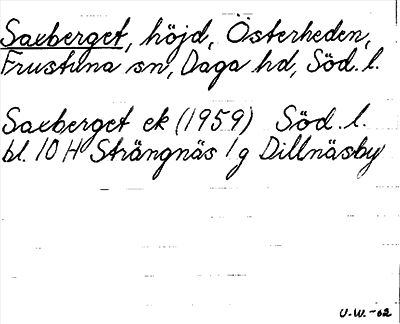 Saxberget, höjd, Österheden,
Frustuna sn, Daga hd, Söd. l.
Saxberget ek (1959) Söd. l.
bl. 10 H Strängnäs 1g Dillnäsby
U.W.-62